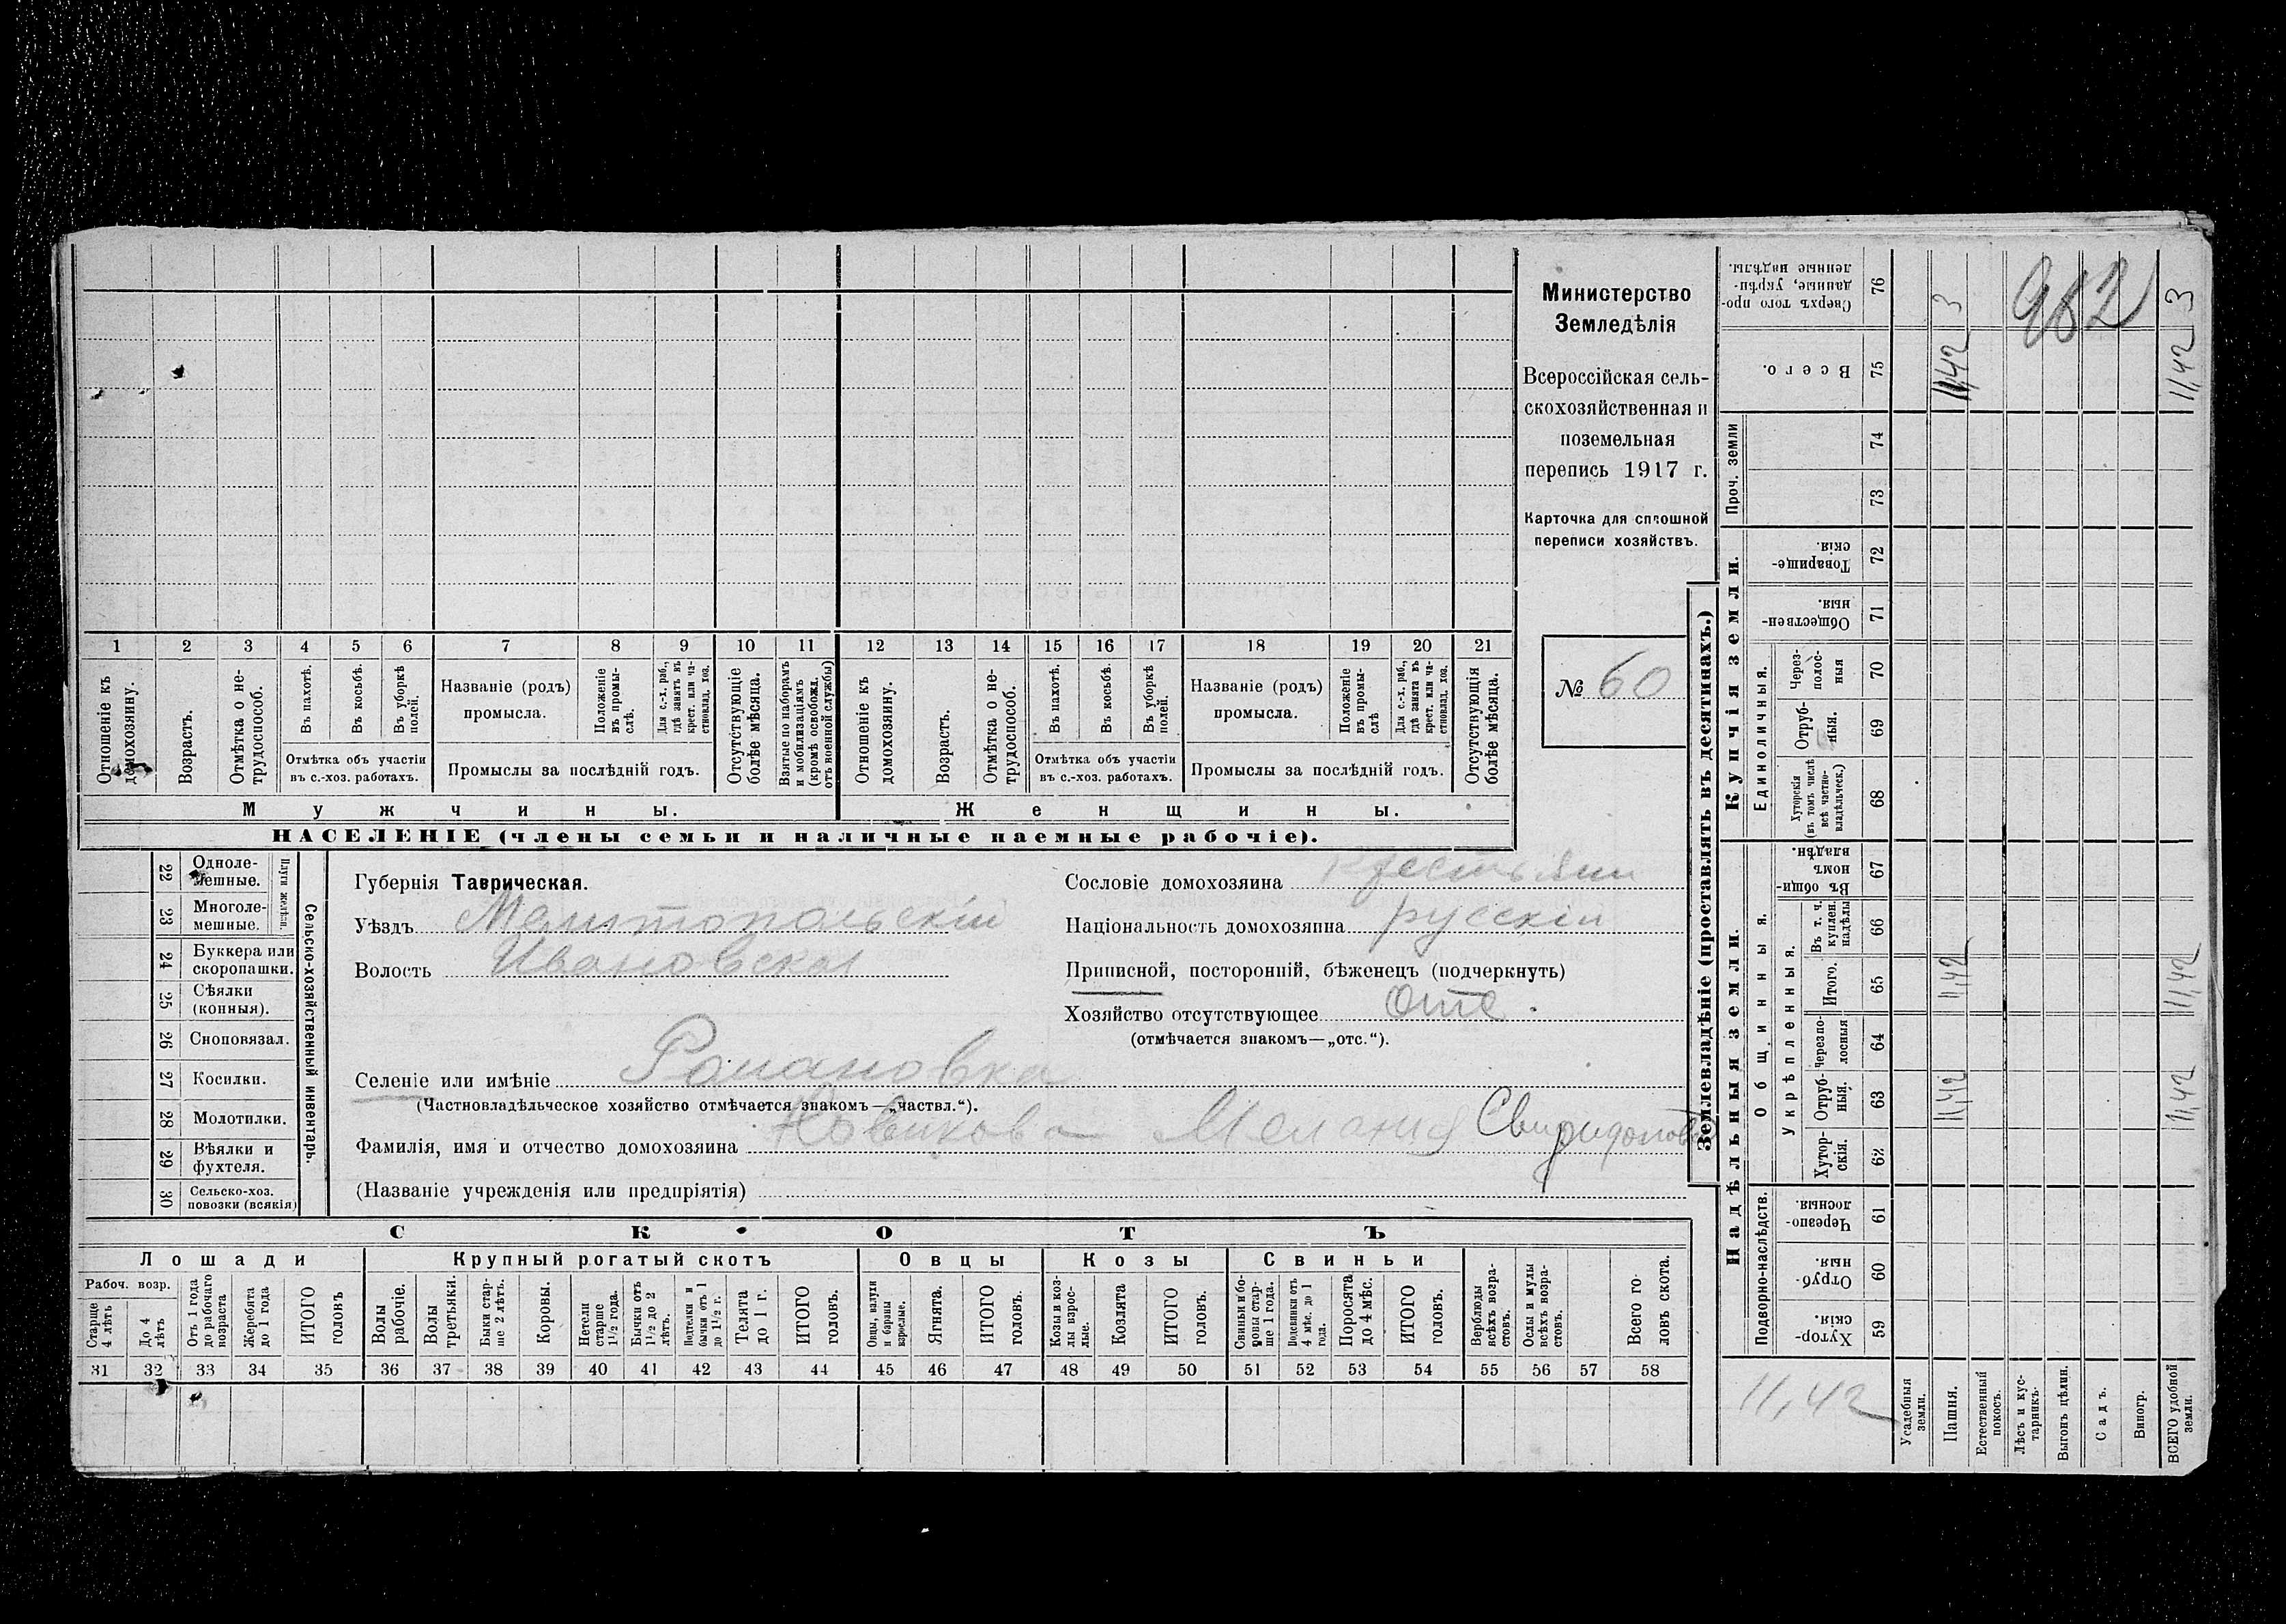 Министерство
Земледѣлія
Всероссійская сель-
скохозяйственная и
поземельная
перепись 1917 г.
Карточка для сплошной
переписи хозяйствъ.
№ 60
1 2 3 4 5 6 7 8 9 10 11 12 13 14 15 16 17 18 19 20 21
Отношеніе къ домохозяину.
Возрастъ.
Отмѣтка о не-трудоспособ.
Въ пахотѣ.
Въ косьбѣ.
Въ уборкѣ полей.
Названіе (родъ) промысла.
Положеніе въ промы-слѣ.
Для с.-х. раб., гдѣ занятъ въ крест. или ча-стновлад. хоз.
Отсутствующіе болѣе мѣсяца.
Взятые по наборамъ и мобилизаціямъ (кромѣ освобожд. отъ военной службы)
Отношеніе къ домохозяину.
Возрастъ.
Отмѣтка о не-трудоспособ.
Въ пахотѣ.
Въ косьбѣ.
Въ уборкѣ полей.
Названіе (родъ) промысла.
Положеніе въ промы-слѣ
Для с.-х. раб., гдѣ занята въ крест. или ча-стновлад. хоз.
Отсутствующія болѣе мѣсяца.
Отмѣтка объ участіи въ с.-хоз. работахъ.
Промыслы за послѣдній годъ.
Отмѣтка объ участіи въ с.-хоз. работахъ.
Промыслы за послѣдній годъ.
Мужчины.
Женщины.
НАСЕЛЕНІЕ (члены семьи и наличные наемные рабочіе).
22 Одноле-мешные.
23 Многоле-мешные.
Плуги желѣзн.
24 Буккера или скоропашки.
25 Сѣялки (конныя).
26 Сноповязал.
27 Косилки.
28 Молотилки.
29 Вѣялки и фухтеля.
30 Сельско-хоз. повозки (всякія)
Сельско-хозяйственный инвентарь.
Губернія Таврическая.
Уѣздъ Мелитопольскій
Волость Ивановская
Сословіе домохозяина крестьянин
Національность домохозяина русскій
Приписной, посторонній, бѣженецъ (подчеркнуть)
Хозяйство отсутствующее отс.
(отмѣчается знакомъ—„отс.“).
Селеніе или имѣніе Романовка
(Частновладѣльческое хозяйство отмѣчается знакомъ—„частвл.“).
Фамилія, имя и отчество домохозяина Новикова Мелания Свиридоновна
(Названіе учрежденія или предпріятія)
СКОТЪ
Лошади
Крупный рогатый скотъ
Овцы
Козы
Свиньи
Рабоч. возр.
Старше 4 лѣтъ
До 4 лѣтъ
Отъ 1 года до рабочаго возраста
Жеребята до 1 года
ИТОГО головъ
Волы рабочіе.
Волы третьяки.
Быки стар-ше 2 лѣтъ.
Коровы.
Нетели старше 1½ года.
Бычки отъ 1½ до 2 лѣтъ.
Подтелки и бычки отъ 1 до 1½ г.
Телята до 1 г.
ИТОГО головъ.
Овцы, валухи и бараны взрослые.
Ягнята.
ИТОГО головъ.
Козы и коз-лы взрос-лые.
Козлята
ИТОГО головъ.
Свиньи и бо-ровы стар-ше 1 года.
Подсвинки отъ 4 мѣс. до 1 года.
Поросята до 4 мѣс.
ИТОГО головъ.
Верблюды всѣхъ возра-стовъ.
Ослы и мулы всѣхъ возра-стовъ.
Всего го-ловъ скота.
31 32 33 34 35 36 37 38 39 40 41 42 43 44 45 46 47 48 49 50 51 52 53 54 55 56 57 58
Землевладѣніе (проставлять въ десятинахъ.)
Надѣльныя земли.
Купчія земли.
Проч. земли
Подворно-наслѣдств.
Общинныя.
Укрѣпленныя.
Единоличныя.
59 Хутор-скія.
60 Отруб-ныя.
61 Черезпо-лосныя.
62 Хутор-скія.
63 Отруб-ныя. 11,42 11,42
64 Черезпо-лосныя
65 Итого. 11,42 11,42
66 Въ т. ч. куплен. надѣлы
67 Въ общи-номъ владѣн.
68 Хуторскія (въ томъ числѣ всѣ частно-владѣльческ.)
69 Отруб-ныя.
70 Через-полос-ныя
71 Обществен-ныя.
72 Товарище-скія
73
74
75 Всего. 11,42 11,42
76 Сверхъ того про-данные, укрѣп-ленные надѣлы. 3 3
982
11,42
Усадебныя земли.
Пашня.
Естественный покосъ.
Лѣсъ и кус-тарникъ.
Выгонъ цѣлин.
Садъ.
Виногр.
ВСЕГО удобной земли.